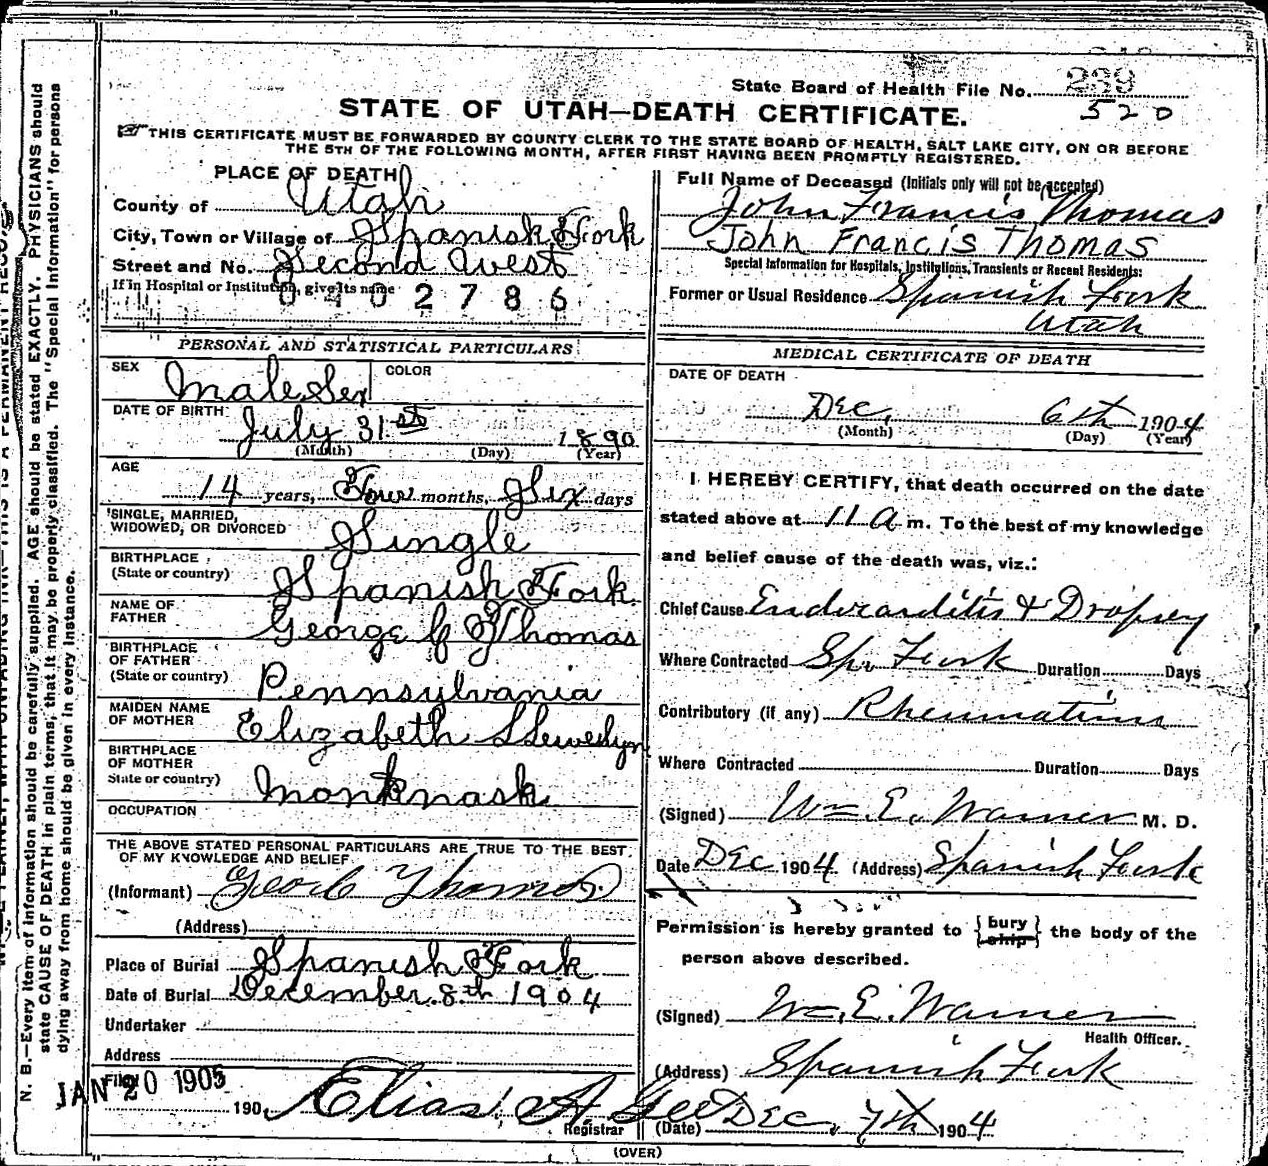 State Board of Health File No. 239
520
STATE OF UTAH—DEATH CERTIFICATE.
THIS CERTIFICATE MUST BE FORWARDED BY COUNTY CLERK TO THE STATE BOARD OF HEALTH, SALT LAKE CITY, ON OR BEFORE
THE 5TH OF THE FOLLOWING MONTH, AFTER FIRST HAVING BEEN PROMPTLY REGISTERED.
PLACE OF DEATH
County of Utah
City, Town or Village of Spanish Fork
Street and No. Second West
If in Hospital or Institution, give its name
0402786
Full Name of Deceased (Initials only will not be accepted)
John Francis Thomas
John Francis Thomas
Special Information for Hospitals, Institutions, Transients or Recent Residents:
Former or Usual Residence Spanish Fork
Utah
PERSONAL AND STATISTICAL PARTICULARS
SEX Male Sex COLOR
DATE OF BIRTH July 31st 1890
(Month) (Day) (Year)
AGE 14 years, Four months, Six days
SINGLE, MARRIED,
WIDOWED, OR DIVORCED Single
BIRTHPLACE
(State or country) Spanish Fork
NAME OF
FATHER George C Thomas
BIRTHPLACE
OF FATHER
(State or country) Pennsylvania
MAIDEN NAME
OF MOTHER Elizabeth Llewedlyn
BIRTHPLACE
OF MOTHER
State or country)
OCCUPATION
THE ABOVE STATED PERSONAL PARTICULARS ARE TRUE TO THE BEST
OF MY KNOWLEDGE AND BELIEF
(Informant) Geo C Thomas
(Address)
Place of Burial Spanish Fork
Date of Burial December 8th 1904
Undertaker
Address
Filed JAN 20 1905
190 Elias A Gee
Registrar
MEDICAL CERTIFICATE OF DEATH
DATE OF DEATH
Dec. 6th 1904
(Month) (Day) (Year)
I HEREBY CERTIFY, that death occurred on the date
stated above at 11 a m. To the best of my knowledge
and belief cause of the death was, viz.:
Chief Cause Endocarditis & Dropsy
Where Contracted Sp. Fork Duration Days
Contributory (if any) Rheumatism
Where Contracted Duration Days
(Signed) Wm. E. Warner M. D.
Date Dec 1904 (Address) Spanish Fork
Permission is hereby granted to {bury ship} the body of the
person above described.
(Signed) Wm. E. Warner
Health Officer.
(Address) Spanish Fork
(Date) Dec. 7th 1904
(OVER)
N. B.—Every item of information should be carefully supplied. AGE should be stated EXACTLY. PHYSICIANS should
state CAUSE OF DEATH in plain terms, that it may be properly classified. The "Special Information" for persons
dying away from home should be given in every instance.